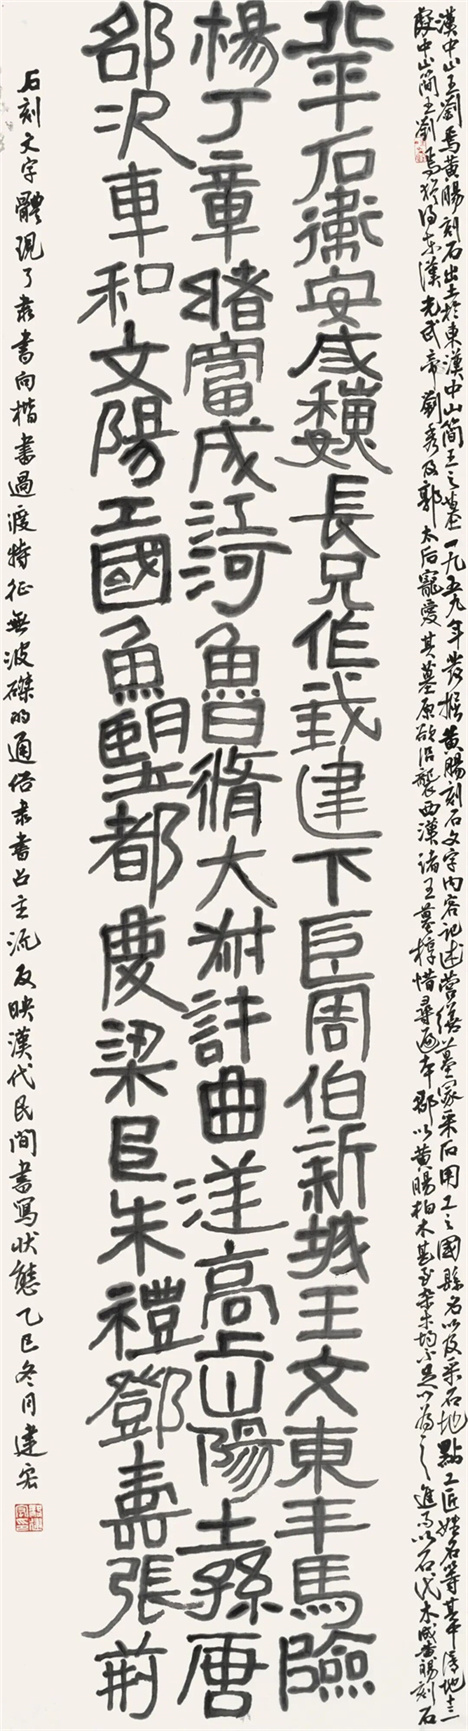 漢中山王劉焉黃腸刻石出土於東漢中山簡王之墓一九五九年發掘黃腸刻石文字內容記述營繕墓冢采石用工之國縣名以及采石地點工匠姓名等其中
中山簡王劉焉猶得東漢光武帝劉秀及郭太后寵愛其墓原欲沿襲西漢諸王墓椁惜尋遍本郡以黃腸柏木甚至杂木均不足以為之進而以石代木成黃腸刻石
北平石衛安成魏長兄作武建下巨周伯新城王文東平馬險
楊丁章睹富成江河魯脩大尉許曲逆高山陽土孫唐
郤車和文陽工國魚望都慶梁巨朱禮鄧嘉張荊
石刻文字體現了隸書向楷書過渡特征無波磔的通俗隸書占主流反映漢代民間書寫狀態乙巳冬月建宏